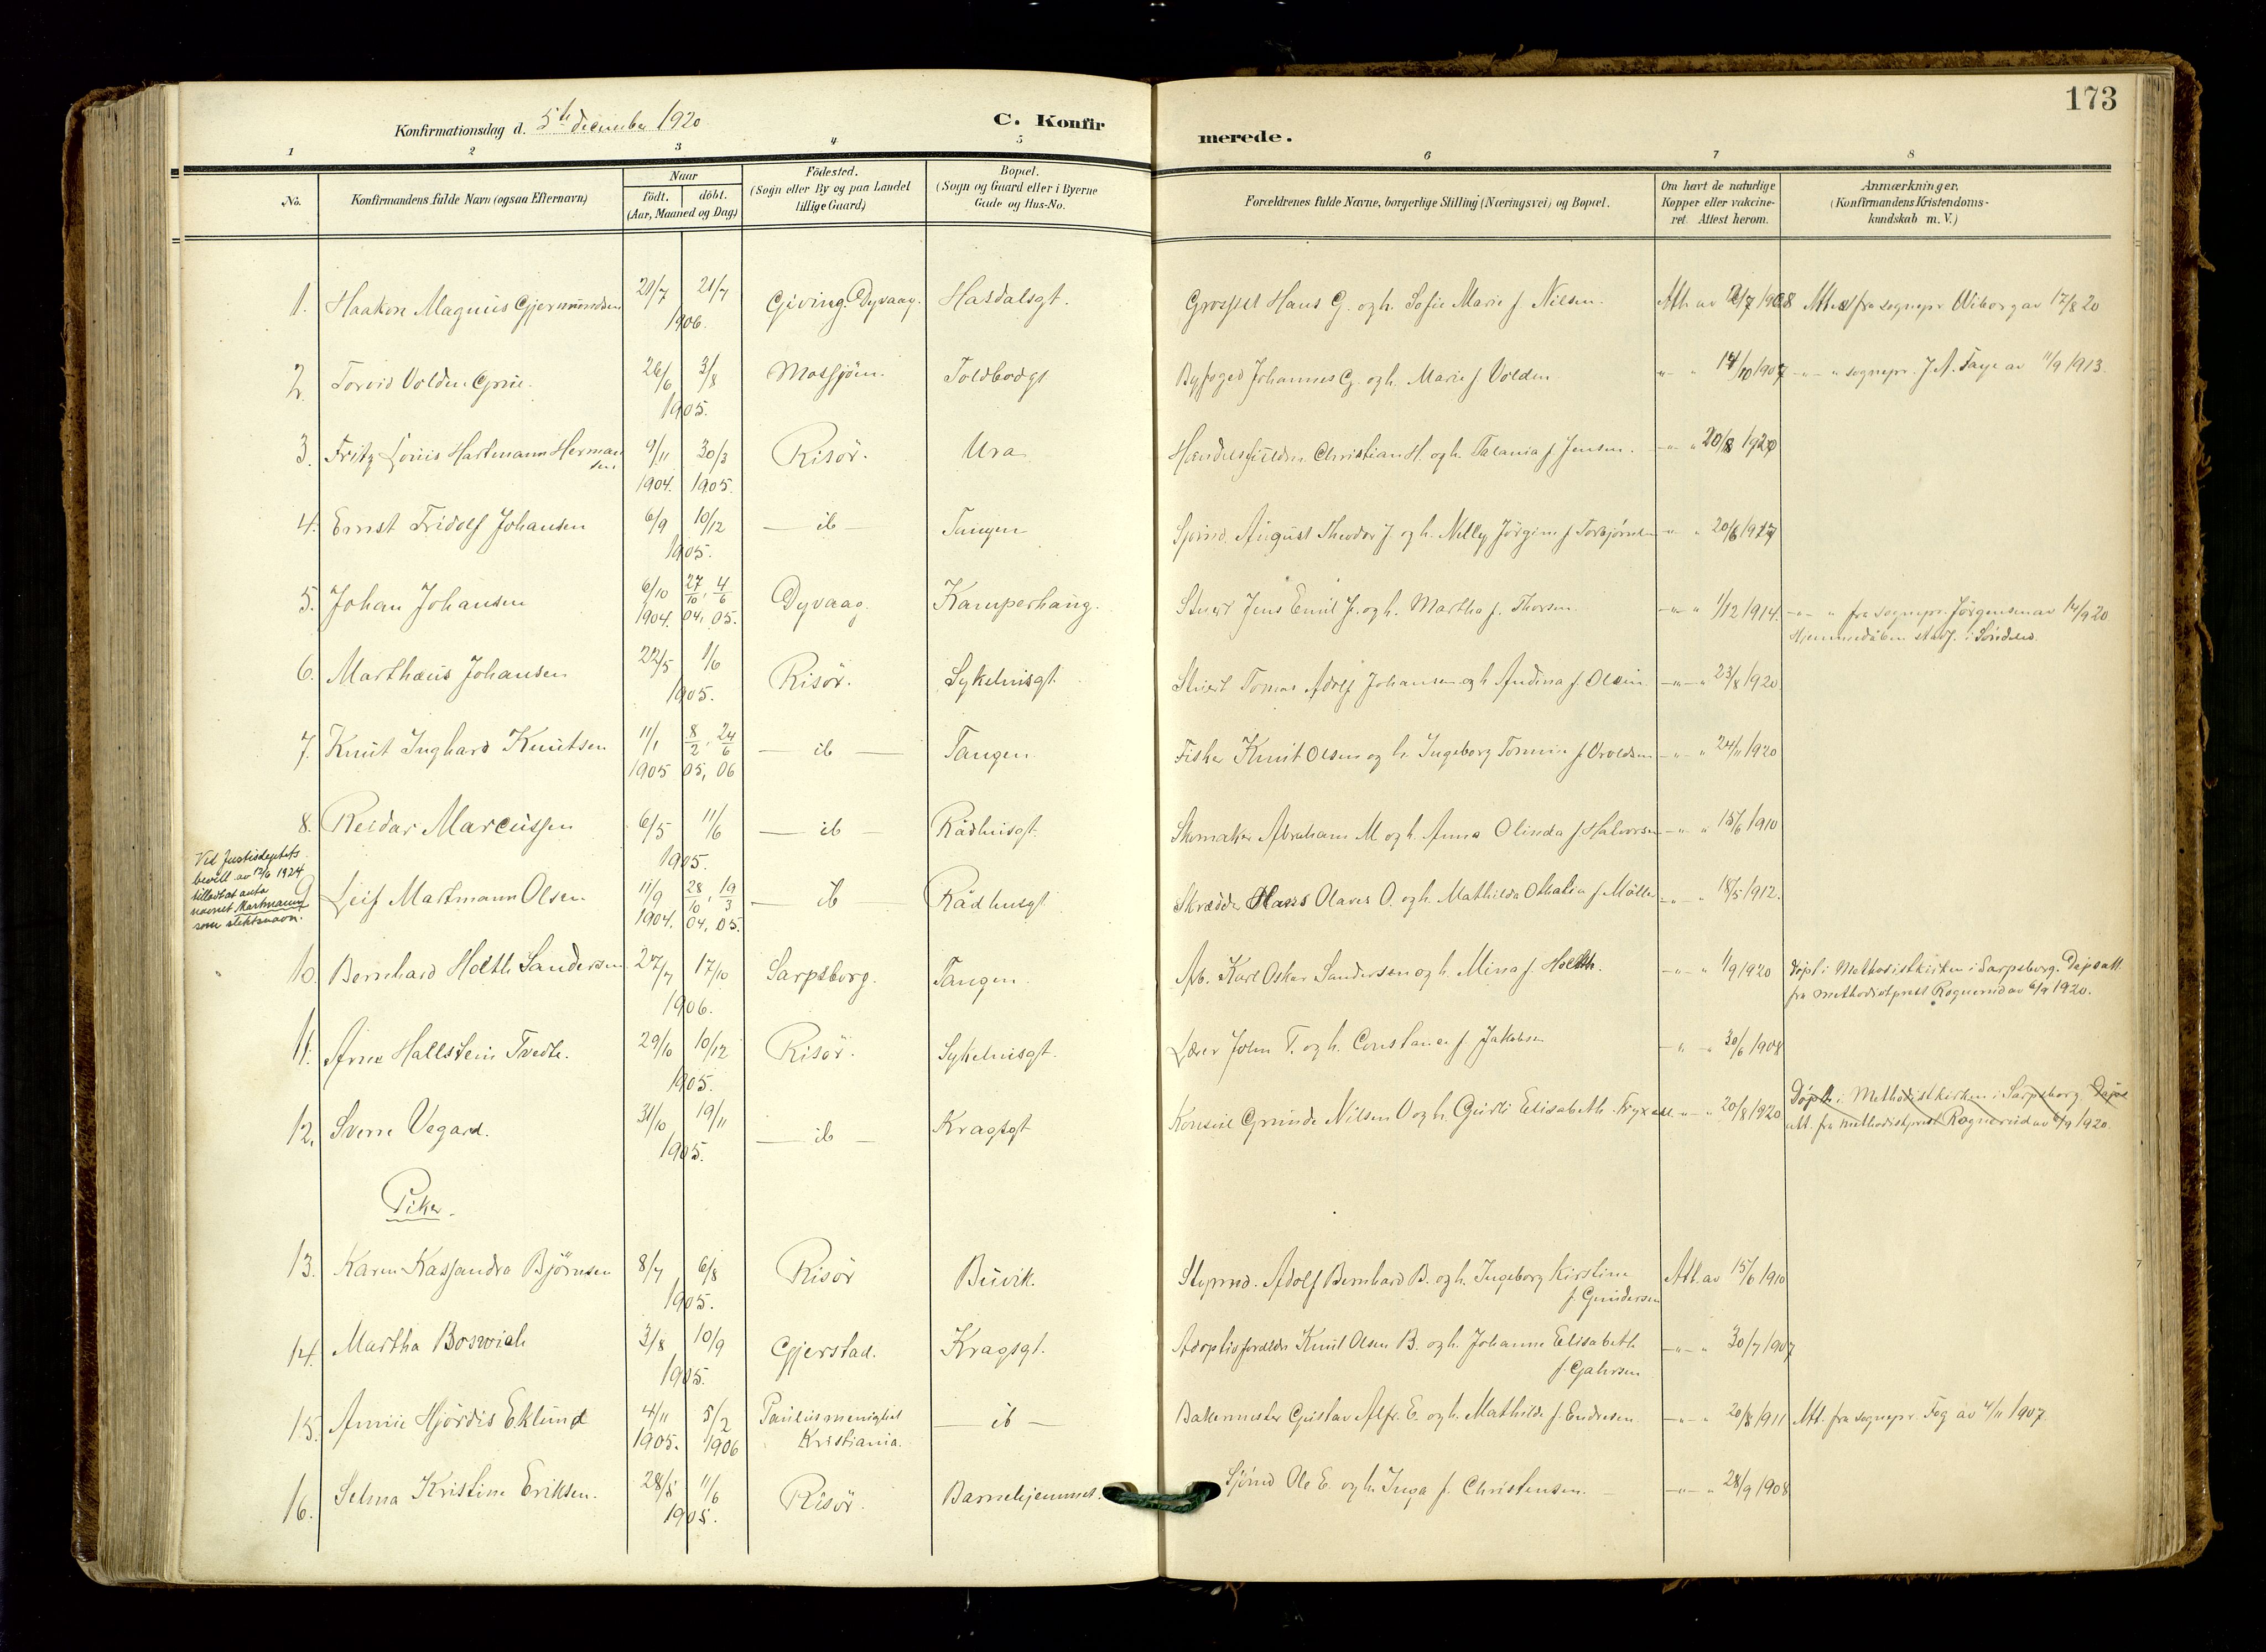 173
Konfirmationsdag d. 5te december 1920 C. Konfirmerede.
1 2 3 4 5 6 7 8
No. Konfirmandens fulde Navn (ogsaa Efternavn) Naar födt. döbt. (Aar, Maaned og Dag) Födested. (Sogn eller By og paa Landet tillige Gaard) Bopæl. (Sogn og Gaard eller i Byerne Gade og Hus-No. Forældrenes fulde Navne, borgerlige Stilling (Næringsvei) og Bopæl. Om havt de naturlige Kopper eller vakcineret. Attest herom. Anmærkninger, (Konfirmandens Kristendomskundskab m. V.)
1. Haakon Magnus Gjermundsen 21/7 21/7 1906. Giving. Dyvaag. Hasdalsgt. Hans G. og h. Sofie Marie f. Nilsen. Att. av /7 1908 Att. fra sognepr. Wiborg av 17/8 20
2. Torvid Volden Grue. 26/6 3/8 1905. Mosjøen. Toldbodgt Byfoged Johannes G. og h. Marie f Volden - " - " 14/10 1907 - " - " sognepr. J. A. Faye av 11/9 1913.
3. Fritz Louis Hartmann Hermansen 9/11 1904. 30/3 1905. Risör. Ura Christian H. og h. Talania f. Jensen. - " - " 20/8 1920
4. Ernst Fridolf Johansen 6/9 10/12 1905. - ib - Tangen Sjømd. August Theodor J. og h. Nelly Jörgine f Torbjörnsen - " - " 20/6 1917
5. Johan Johansen 6/10 1904. 27/10, 4/6 04, 05. Dyvaag. Kamperhaug. Stuert Jens Emil J. og h. Martha f. Thorsen. - " - " 1/12 1914. - " - " fra sognepr. Jörgensen av 14/9 20
Hjemmedåben stadf. i Söndeled.
6. Marthæus Johansen 22/5 1/6 1905. Risör. Sykehusgt. Stuert Tomas Adolf Johansen og h Andina f. Olsen - " - " 23/8 1920.
7. Knut Inghard Knutsen 11/1 1905 8/2, 24/6 05, 06 - ib - Tangen. Fisker Knut Olsen og h. Ingeborg Tomine f. Oroldsen - " - " 24/11 1920
8. Reidar Marcussen 6/5 11/6 1905. - ib - Rådhusgt. Skomaker Abraham M og h. Anna Olinda f Halvorsen - " - " 15/6 1910
Ved Justisdeptets
bevill. av 12/6 1924
tillatt at anta
navnet Martmann
som slektsnavn.
9 Leif Martmann Olsen 11/9 1904. 28/10, 19/3 04, 05. - ib - Rådhusgt Skrædder Hans Olaves O. og h. Mathilda Othalia f Möller - " - " 18/5 1912.
10. Bernhard Holth Sandersen 27/7 17/10 1906. Sarpsborg. Tangen. Arb. Karl Oskar Sandersen og h. Mina f. Holth. - " - " 1/9 1920 Döpt i Methodistkirken i Sarpsborg. Dåpsatt.
fra methodistprest Rognerud av 6/9 1920.
11. Arne Hallstein Tvedte. 29/10 10/12 1905. Risör. Sykehusgt. Lærer John T. og h. Constance f Jakobsen - " - " 30/6 1908
12. Sverre Vegard. 31/10 19/11 1905. - ib - Kragsgt Konsul Grunde Nilsen V og h. Gurli Elisabeth Fryxell - " - " 20/8 1920 Döpt i Methodistkirken i Sarpsborg. Dåps
att. fra methodistprest Rognerud av 6/9 1920.
Piker.
13. Karen Kassandra Björnsen 8/7 6/8 1905. Risör Buvik. Styrmd. Adolf Bernhard B. og h. Ingeborg Kirstine f. Gundersen Att. av 15/6 1910
14. Martha Boswich 3/8 10/9 1905. Gjerstad. Kragsgt. Adoptivforældre Knut Olsen B. og h. Johanne Elisabeth f. Gahrsen - " - " 30/7 1907
15. Annie Hjördis Eklund 4/11 1905. 5/2 1906 Paulus menighet Kristiania. - ib - Bakermester Gustav Alfr. E. og h. Mathilde f. Endresen. - " - " 20/8 1911 Att. fra sognepr. Fog av 4/11 1907.
16. Selma Kristine Eriksen. 28/5 11/6 1905. Risör. Barnehjemmet. Sjömd Ole E. og h. Inga f. Christensen. - " - " 28/9 1908